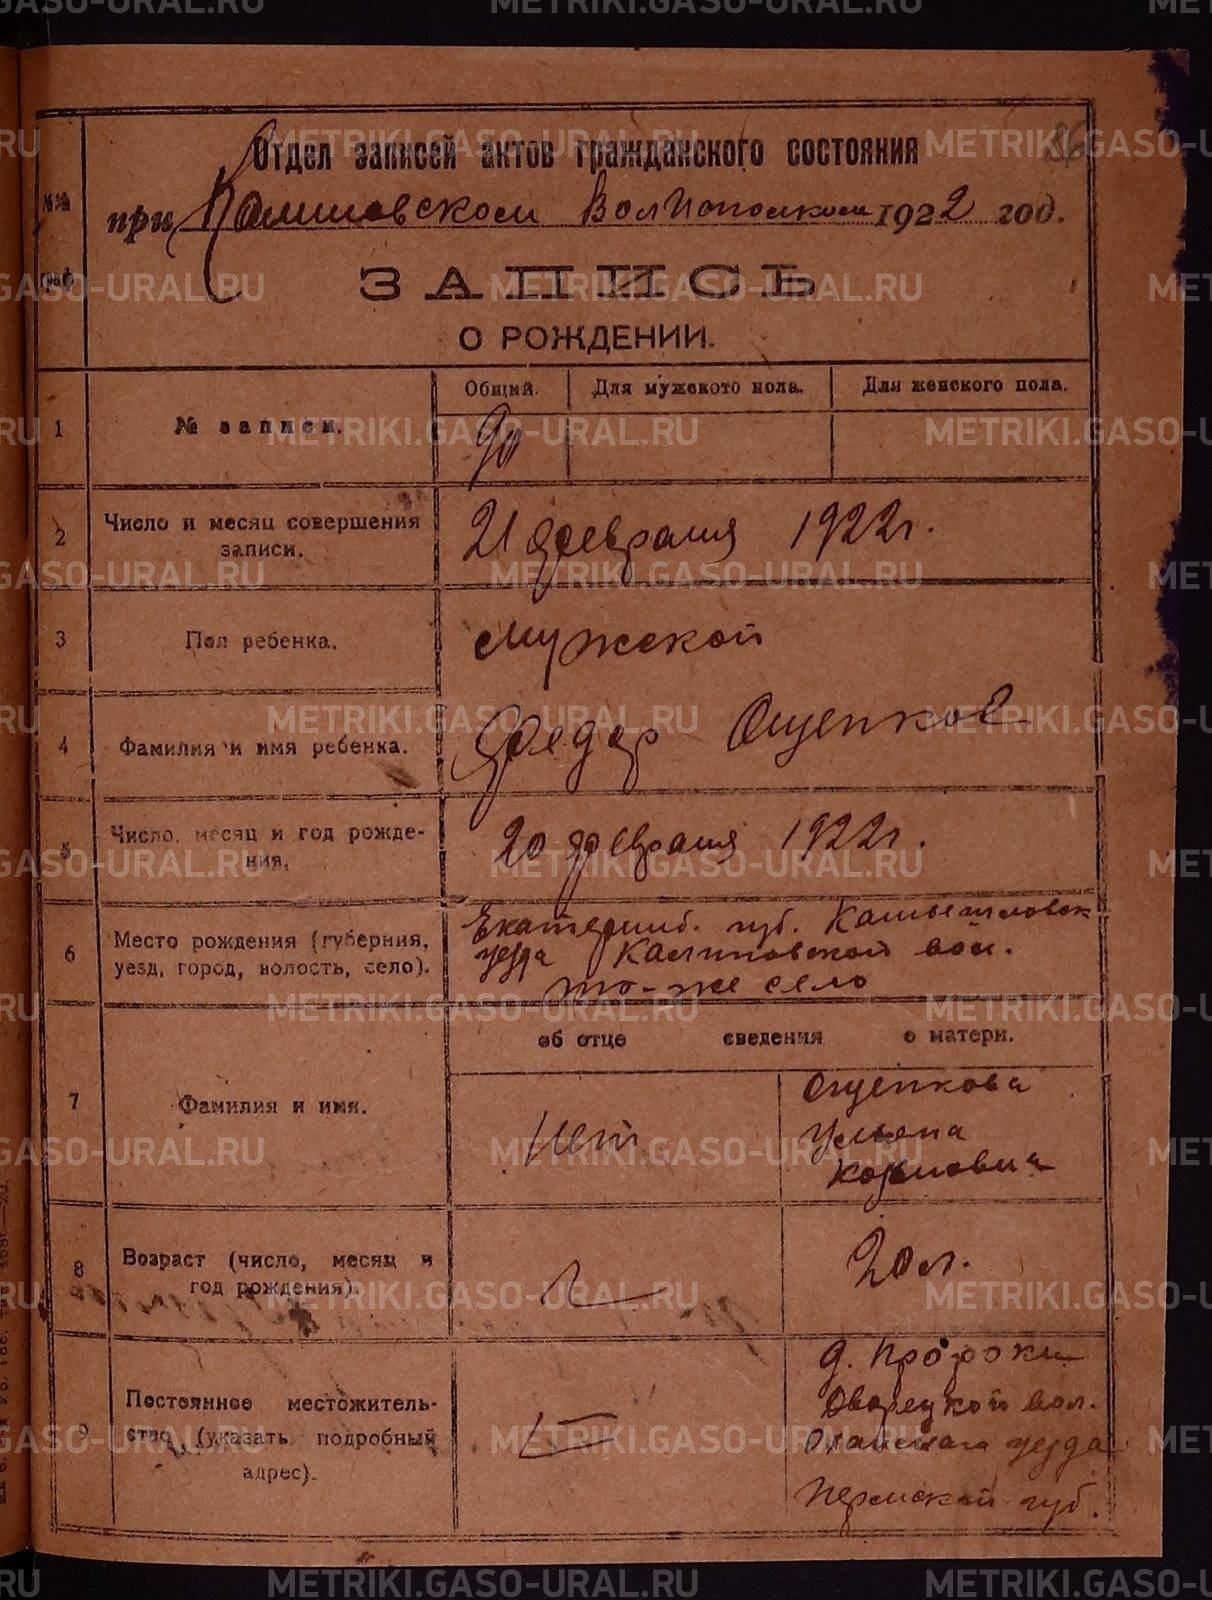 Отдел записей актов гражданского состояния
при Калиновском Волисполкоме 1922 год.
№№ граф
ЗАПИСЬ
О РОЖДЕНИИ.
Общий. Для мужского пола. Для женского пола.
1 № записи. 90
2 Число и месяц совершения записи. 21 февраля 1922 г.
3 Пол ребенка. мужской
4 Фамилия и имя ребенка. Федор Ощепков
5 Число, месяц и год рождения. 20 февраля 1922 г.
6 Место рождения (губерния, уезд, город, волость, село). Екатеринб. губ. Камышловск
уезда Калиновской вол.
то-же село
об отце сведения о матери.
7 Фамилия и имя. нет Ощепкова
Ульяна
8 Возраст (число, месяц и год рождения). 20 л.
9 Постоянное местожительство (указать подробный адрес). д.
Дворецкой вол.
Оханского уезда
Пермской губ.
METRIKI.GASO-URAL.RU